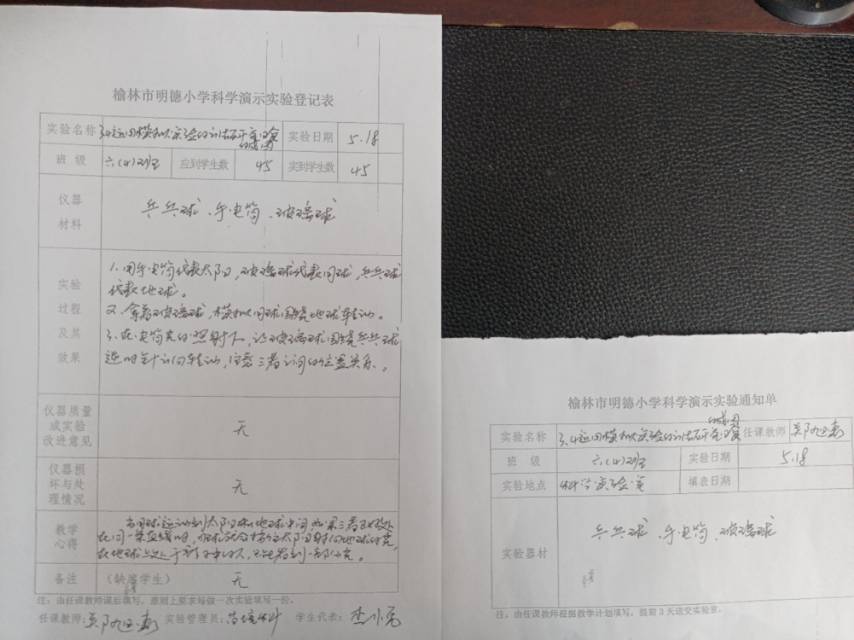 榆林市明德小学科学演示实验登记表
实验名称 3.4运用模拟实验的方法研究 实验日期 5.18
班 级 六(4)班 应到学生数 45 实到学生数 45
仪器
材料
乒乓球、手电筒、玻璃球
实验
过程
及其
效果
1.用手电筒代表太阳,玻璃球代表月球,乒乓球
代表地球。
2.拿着玻璃球,模拟月球围绕地球转动。
3.在电筒光的照射下,让玻璃球围绕乒乓球
逆时针方向转动,注意三者之间的位置关系。
仪器质量
或实验
改进意见
无
仪器损
坏与处
理情况
无
教学
心得
当月球运动到太阳和地球中间 如果三者正好处
在同一条直线时,月球就会挡住太阳射向地球的光,
在地球上处于影子中的人,
备注 (缺席学生) 无
注:由任课教师课后填写,原则上要求每做一次实验填写一份。
任课教师: 实验管理员: 学生代表:
榆林市明德小学科学演示实验通知单
实验名称 3.4运用模拟实验的方法研究 任课教师
班 级 六(4)班 实验日期 5.18
实验地点 科学实验室 填表日期
实验器材 乒乓球、手电筒、玻璃球
注:由任课教师根据教学计划填写,提前3天送交实验室。